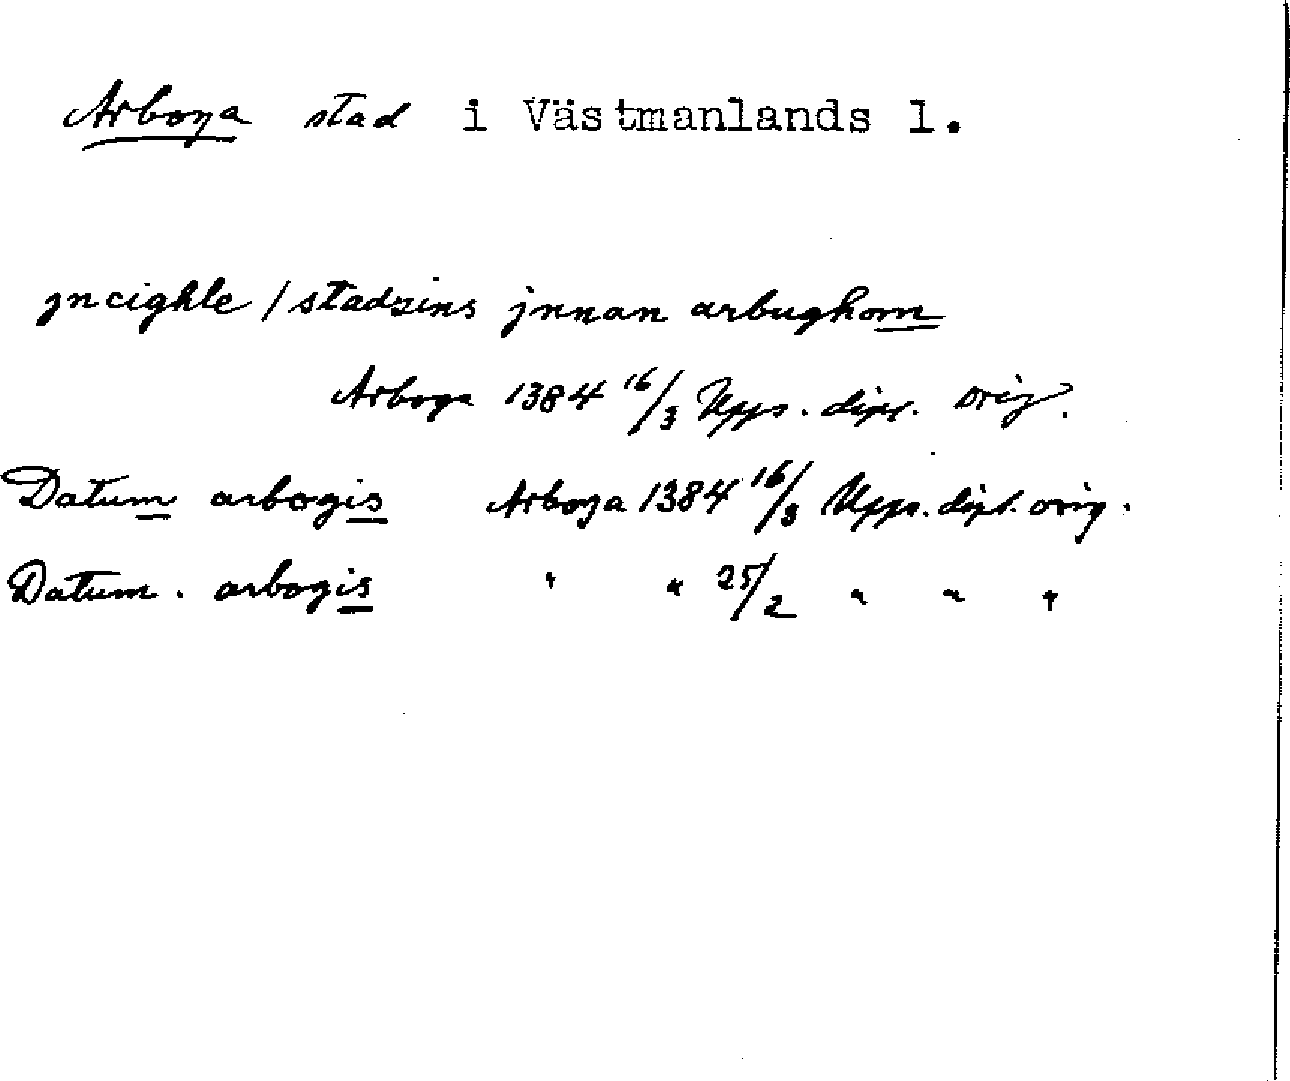 Arboga stad i Västmanlands l.
jncighle / stadzins jnnan arbughom
Arboga 1384 16/3 Upps. dipl. orig.
Datum arbogis Arboga 1384 16/3 Upps. dipl. orig.
Datum. arbogis " " 25/2 " " "